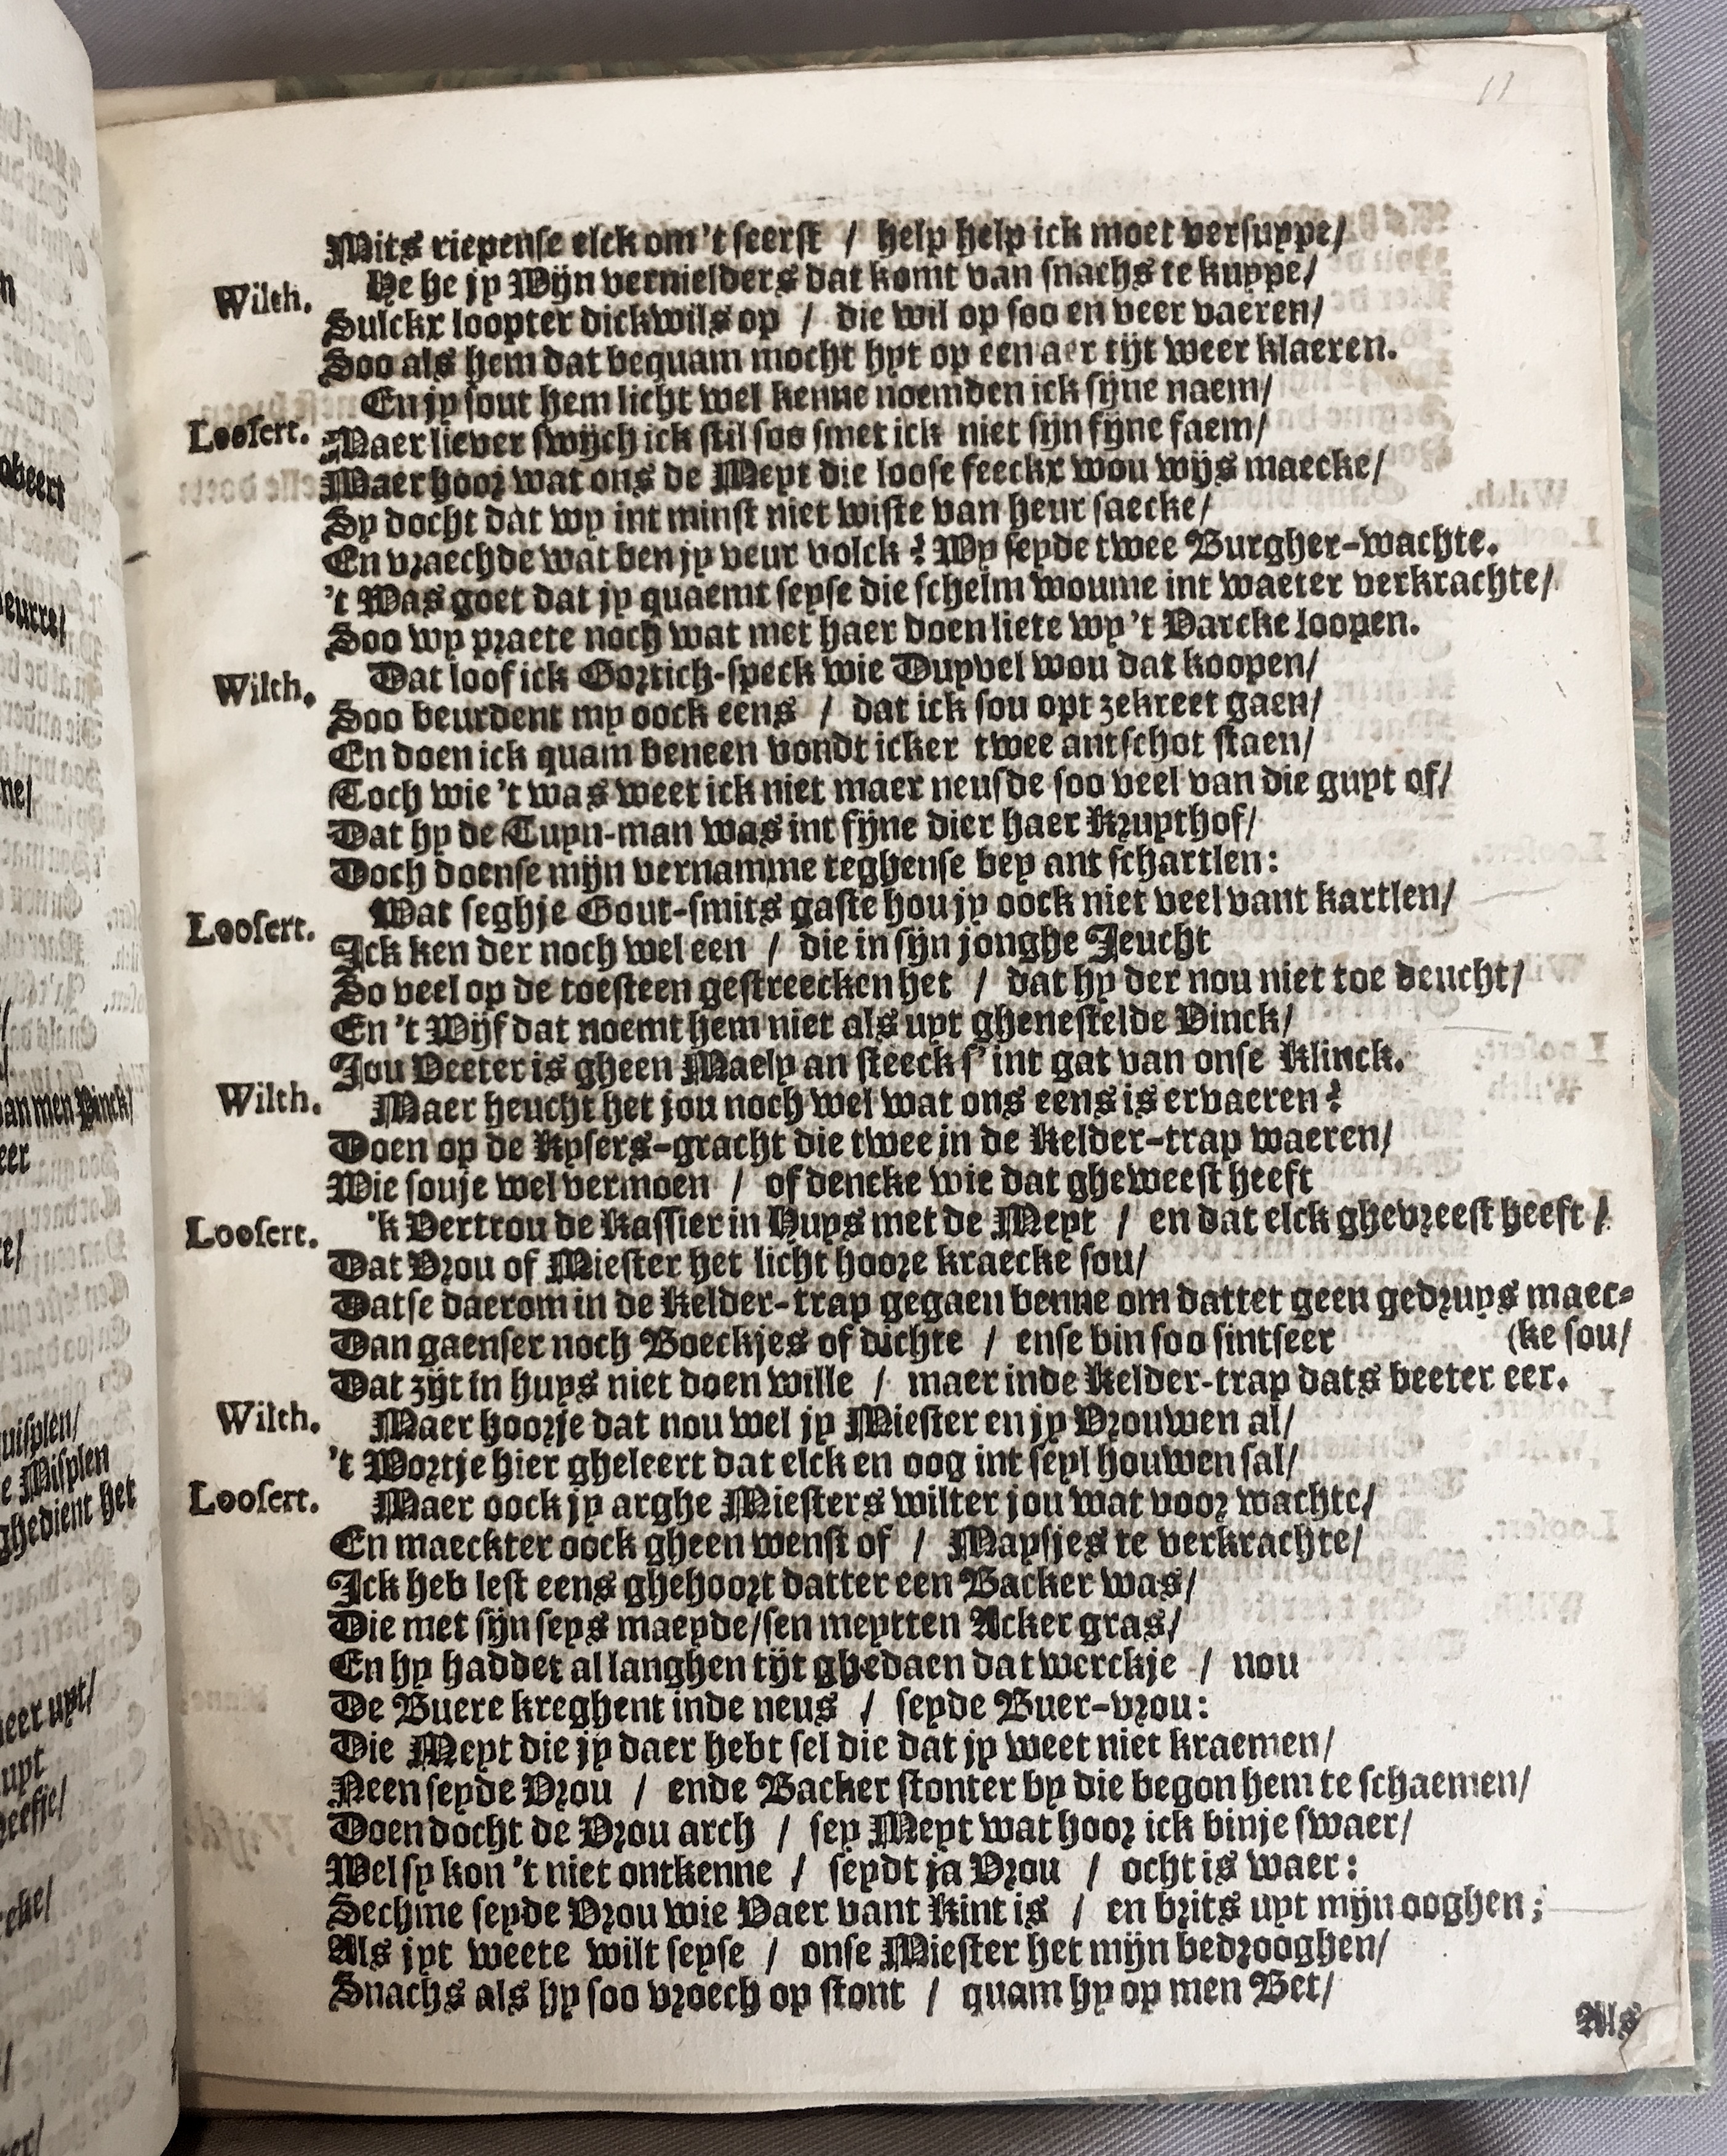 11
Mits riepense elck om 't seerst / help help ick moet versuype/
Wilth. He he jy Wijn vernielders dat komt van snachs te kuype/
Sulckx loopter dickwils op / die wil op soo en veer vaeren/
Soo als hem dat bequam mocht hyt op een aer tijt weer klaeren.
En jy sout hem licht wel kenne noemden ick sijne naem/
Loosert. Maer liever swijch ick stil soo smet ick niet sijn fijne faem/
Maer hoor wat ons de Meyt die loose feeckx wou wijs maecke/
Sy docht dat wy int minst niet wiste van heur saecke/
En vraechde wat ben jy veur volck? Wy seyde twee Burgher-wachte.
't Was goet dat jy quaemt seyse die schelm woume int waeter verkrachte/
Soo wy praete noch wat met haer doen liete wy 't Varcke loopen.
Wilth. Dat loof ick Gortich-speck wie Duyvel wou dat koopen/
Soo beurdent my oock eens / dat ick sou opt zekreet gaen/
En doen ick quam beneen vondt icker twee ant schot staen/
Toch wie 't was weet ick niet maer neusde soo veel van die guyt of/
Dat hy de Tuyn-man was int fijne dier haer Kruythof/
Doch doense mijn vernamme teghense bey ant schartlen:
Loosert. Wat seghje Gout-smits gaste hou jy oock niet veel vant kartlen/
Ick ken der noch wel een / die in sijn jonghe Jeucht
So veel op de toesteen gestreecken het / dat hy der nou niet toe deucht/
En 't Wijf dat noemt hem niet als uyt ghenestelde Pinck/
Jou Veeter is gheen Maely an steeck s' int gat van onse Klinck.
Wilth. Maer heucht het jou noch wel wat ons eens is ervaeren?
Doen op de Kysers-gracht die twee in de Kelder-trap waeren/
Wie souje wel vermoen / of dencke wie dat gheweest heeft
Loosert. 'k Vertrou de Kassier in Huys met de Meyt / en dat elck ghevreest heeft /
Dat Vrou of Miester het licht hoore kraecke sou/
Datse daerom in de Kelder-trap gegaen benne om dattet geen gedruys maec-
Dan gaenser noch Boeckjes of dichte / ense bin soo sintseer (ke sou/
Dat zijt in huys niet doen wille / maer inde Kelder-trap dats beeter eer.
Wilth. Maer hoorje dat nou wel jy Miester en jy Vrouwen al/
't Wortje hier gheleert dat elck en oog int seyl houwen sal/
Loosert. Maer oock jy arghe Miesters wilter jou wat voor wachte/
En maeckter oock gheen wenst of / Maysjes te verkrachte/
Ick heb lest eens ghehoort datter een Backer was/
Die met sijn seys maeyde/sen meytten Acker gras/
En hy haddet al langhen tijt ghedaen dat werckje / nou
De Buere kreghent inde neus / seyde Buer-vrou:
Die Meyt die jy daer hebt sel die dat jy weet niet kraemen/
Neen seyde Vrou / ende Backer stonter by die begon hem te schaemen/
Doen docht de Vrou arch / sey Meyt wat hoor ick binje swaer/
Wel sy kon 't niet ontkenne / seydt ja Vrou / och t is waer:
Sechme seyde Vrou wie Vaer vant Kint is / en brits uyt mijn ooghen;
Als jyt weete wilt seyse / onse Miester het mijn bedrooghen/
Snachs als hy soo vroech op stont / quam hy op men Bet/
Als